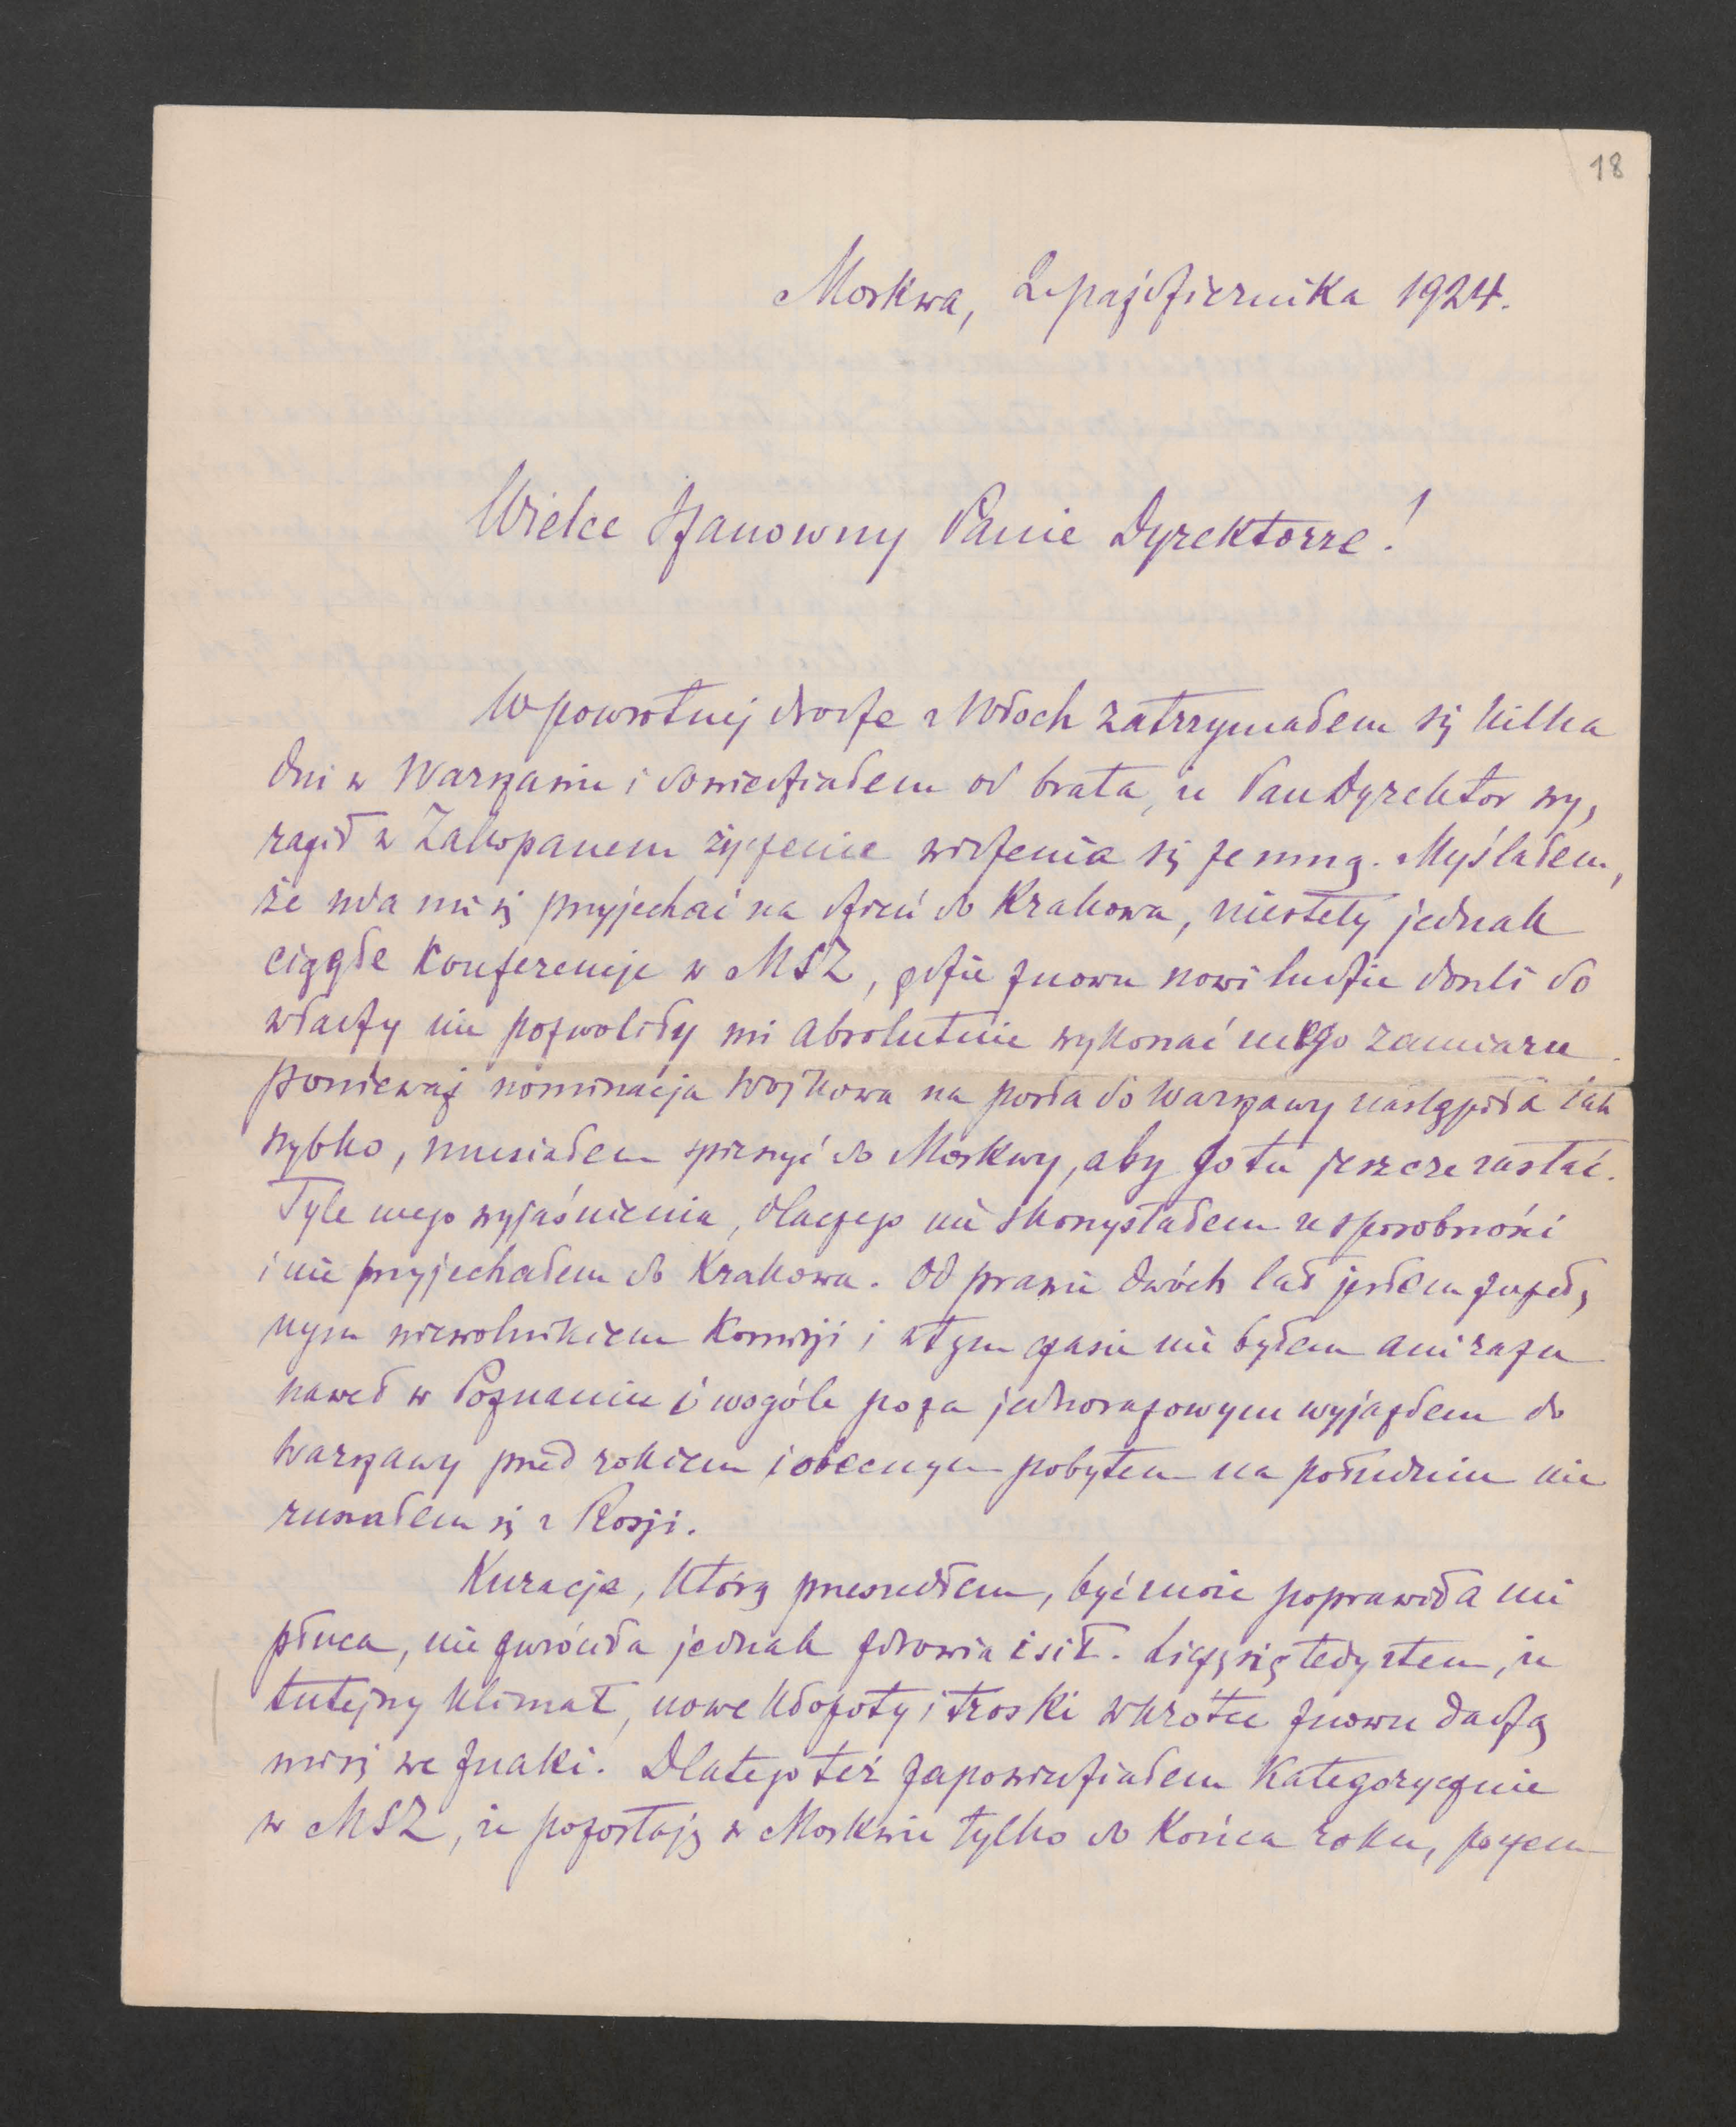 18
Moskwa, 2 października 1924.
Wielce Szanowny Panie Dyrektorze!
W powrotnej drodze z Włoch zatrzymałem się kilka
dni w Warszawie i dowiedziałem od brata, że Pan Dyrektor wy,
raził w Zakopanem życzenie widzenia się ze mną. Myślałem,
że uda mi się przyjechać na dzień do Krakowa, niestety jednak
ciągłe konferencje w MSZ, gdzie znowu nowi ludzie doszli do
władzy nie pozwoliły mi absolutnie wykonać mego zamiaru.
ponieważ nominacja Wojkowa na posła do Warszawy nastąpiła tak
szybko, musiałem spieszyć do Moskwy, aby go tu jeszcze zastać.
Tyle mego wyjaśnienia, dlaczego nie skorzystałem ze sposobności
i nie przyjechałem do Krakowa. Od prawie dwóch lat jestem zupeł,
nym niewolnikiem Komisji i w tym czasie nie byłem ani razu
nawet w Poznaniu i wogóle poza jednorazowym wyjazdem do
Warszawy przed rokiem i obecnym pobytem na południu nie
ruszałem się z Rosji.
Kuracja, którą przeszedłem, być może poprawiła mi
płuca, nie zwróciła jednak zdrowia i sił. Liczę się tedy z tem, że
tutejszy klimat, nowe kłopoty i troski wkrótce znowu dadzą
mi się we znaki. Dlatego też zapowiedziałem kategorycznie
w MSZ, że pozostaję w Moskwie tylko do końca roku, poczem